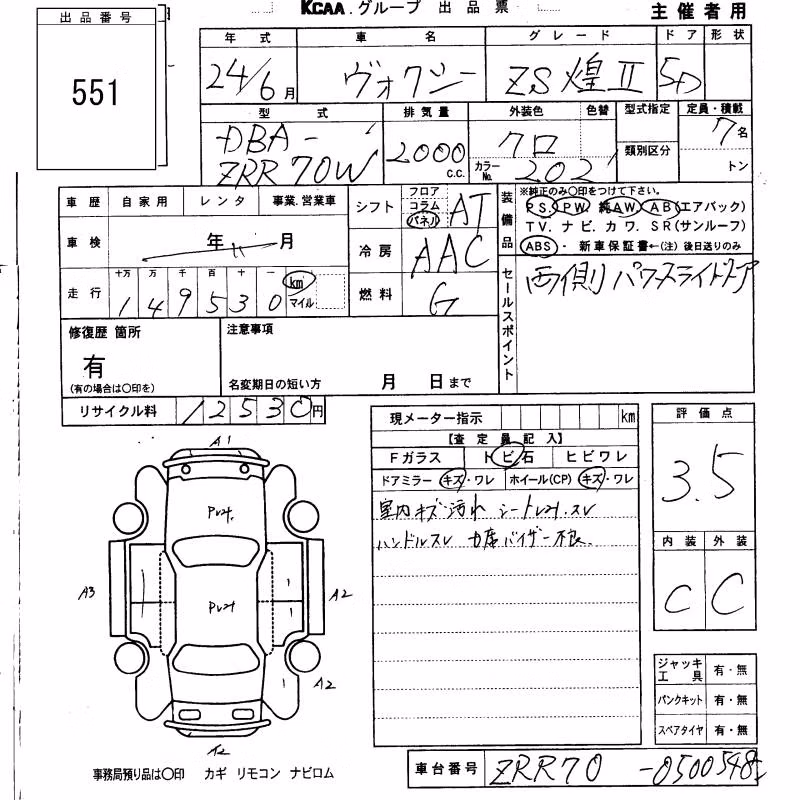 KCAA.グループ 出品票
主催者用
出品番号
551
年式 車名 グレード ドア 形状
24/6月 ヴォクシー ZS煌II 5D
型式 排気量 外装色 色替 型式指定 定員・積載
DBA-
ZRR70W 2000 C.C. クロ 7名
カラーNo. 202 類別区分 トン
車歴 自家用 レンタ 事業.営業車
車検 年 月
走行 十万 万 千 百 十 一
149530 km マイル
シフト フロア コラム パネル AT
冷房 AAC
燃料 G
装備品
※純正のみ○印をつけて下さい。
PS. PW. 純AW. AB(エアバック)
TV. ナビ. カワ. SR(サンルーフ)
ABS ・ 新車保証書←(注)後日送りのみ
セールスポイント
両側パワースライドドア
修復歴 箇所
有
(有の場合は○印を)
注意事項
名変期日の短い方 月 日まで
リサイクル料 12530円
現メーター指示 km
【査定員記入】
Fガラス トビ石 ヒビワレ
ドアミラー キズ・ワレ ホイール(CP) キズ・ワレ
室内キズ・汚れ シートレxt.スレ
ハンドルスレ 力席バイザー不良
評価点
3.5
内装 外装
C C
A1
A3
A2
A2
A2
ジャッキ工具 有・無
パンクキット 有・無
スペアタイヤ 有・無
事務局預り品は○印 カギ リモコン ナビロム
車台番号 ZRR70 -0500548